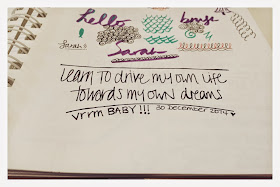 hello
Sarah
Sarah
learn to drive my own life
towards my own dreams
vrrm BABY!!! 30 DECEMBER 2014